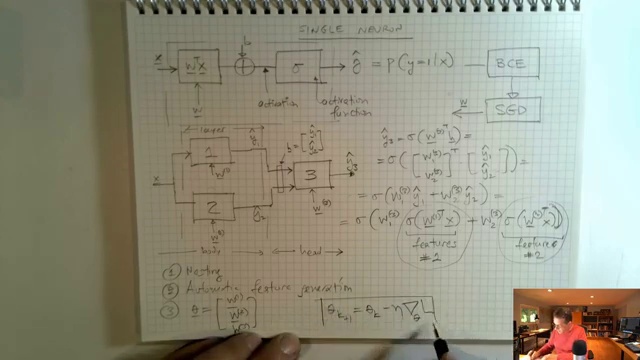 SINGLE NEURON
x wᵀx b σ ŷ = p(y=1|x) BCE
w activation activation function w SGD
1 layer ŷ₁ h = [ŷ₁ ŷ₂] ŷ₃
x 1 w⁽¹⁾ 3 w⁽³⁾
2 w⁽²⁾ ŷ₂
body head
ŷ₃ = σ(w⁽³⁾ᵀ h) =
= σ([w₁⁽³⁾ w₂⁽³⁾]ᵀ [ŷ₁ ŷ₂]) =
= σ(w₁⁽³⁾ŷ₁ + w₂⁽³⁾ŷ₂) =
= σ(w₁⁽³⁾ σ(w⁽¹⁾ᵀx) + w₂⁽³⁾ σ(w⁽²⁾ᵀx))
features features
#2 #2
① Nesting
② Automatic feature generation
③ θ = [w⁽¹⁾ w⁽²⁾ w⁽³⁾] θₖ₊₁ = θₖ − η∇θ L